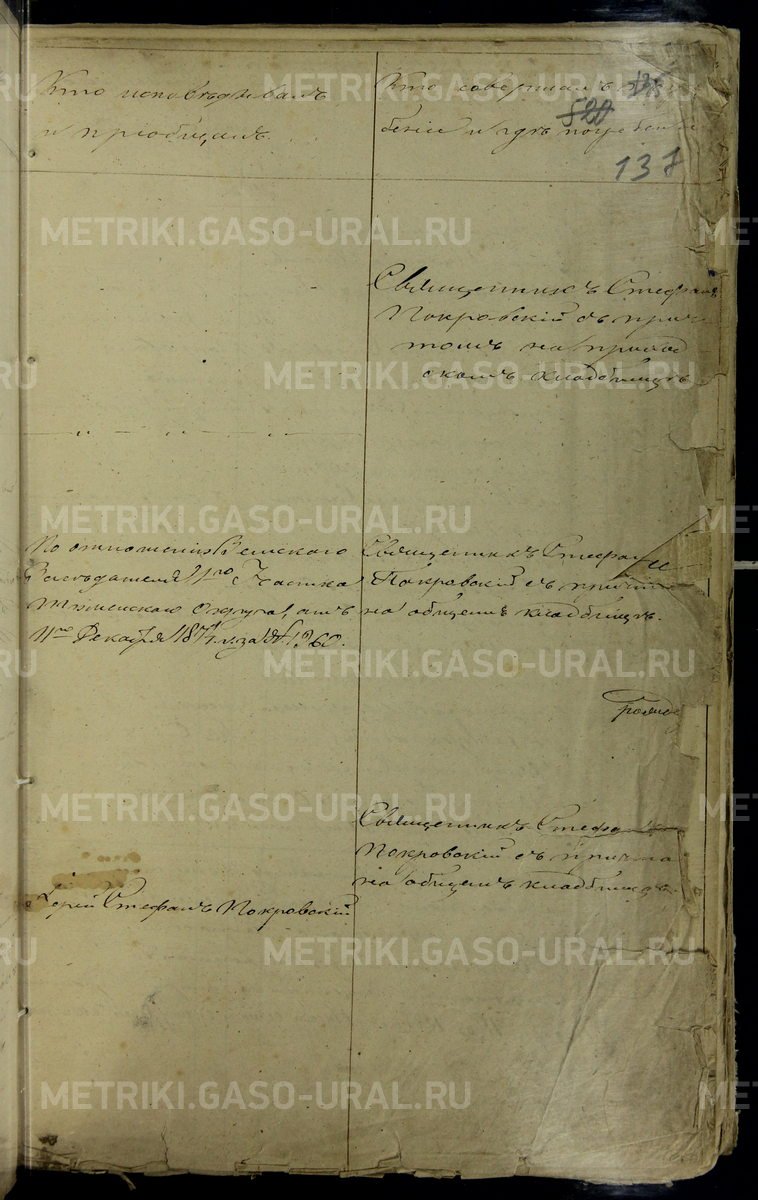 Кто исповѣдывалъ
и пріобщалъ.
Кто совершалъ
беніе и гдѣ погребены
520
137
Священникъ Стефанъ
Покровскій съ прич
томъ на приход
скомъ кладбищѣ
По отношенію Земскаго
Засѣдателя 1го Участка
Тюменскаго Округа, отъ
11го Декабря 1871 г. за № 1360.
Священникъ Стефанъ
Покровскій съ причто
на общемъ кладбищѣ.
Священникъ Стефа
Покровскій съ причто
на общемъ кладбищѣ
Іерей Стефанъ Покровскій
METRIKI.GASO-URAL.RU